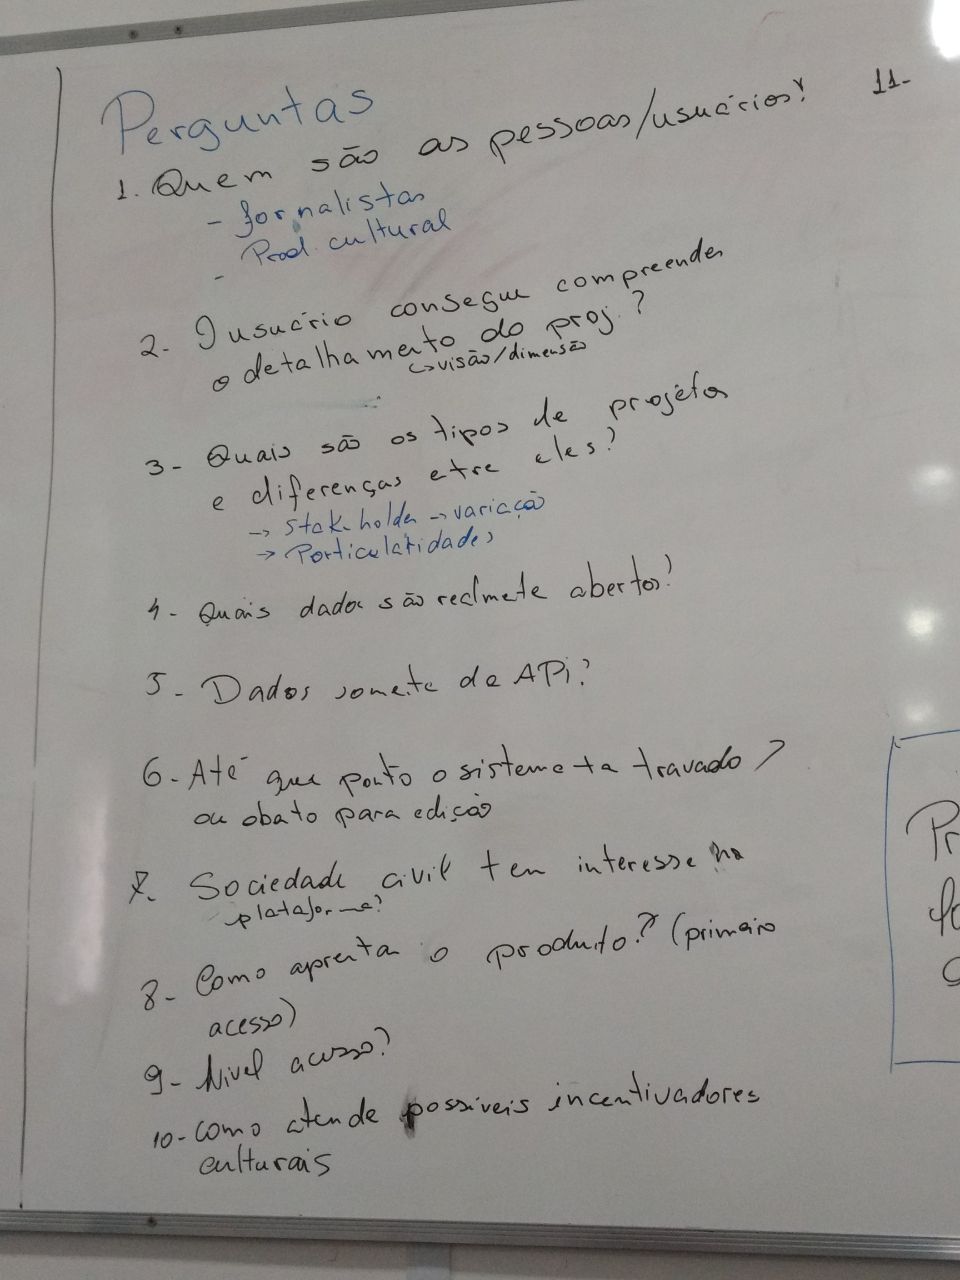 Perguntas
1. Quem são as pessoas/usuários?
- Jornalistas
- Prod. cultural
2- O usuário consegue compreender
o detalhamento do proj.?
↳ visão/dimensão
3- Quais são os tipos de projetos
e diferenças etre eles?
→ Stakeholder → variação
→ Particularidades
4- Quais dados são realmete abertos?
5- Dados somete de APi?
6- Até que ponto o sistema ta travado?
ou abato para edição
7. Sociedade civil tem interesse na
plataforma?
8- Como aprenta o produto? (primeiro
acesso)
9- Nível acesso?
10- Como atende possíveis incentivadores
culturais
11-
Pr